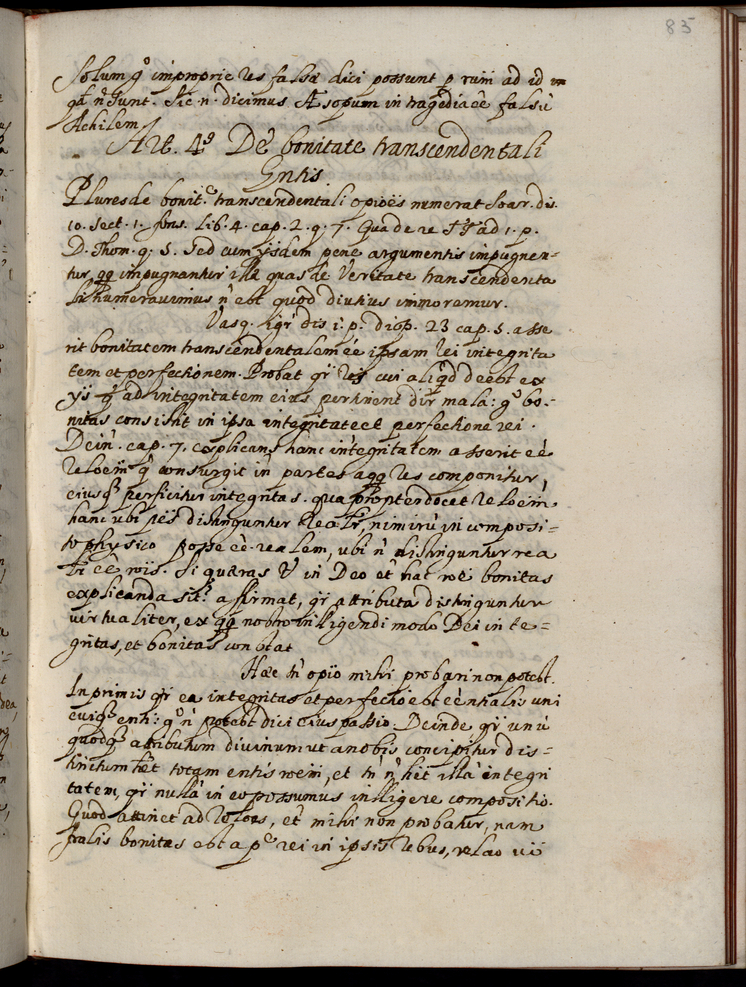 85
Solum gº improprie res falsæ dici possunt p ad id
qđ ñ sunt. Sic n. dicimus Æsopum in tragedia eē falsũ
Achilem
Art. 4º De bonitate transcendentali
Entis
Plures de bonit.e transcendentali opiōes numerat Soar. dis.
10. sect. 1. fons. Lib. 4. cap. 2. q. 7. Quade re ad 1. p.
D. Thom. q. 5. Sed cum ijsdem pene argumentis impugnen=
tur, qq impugnantur illæ quas de Veritate transcendenta
li numeravimus ñ est quod diutius immoremur.
Vasq. igr dis 1. p. disp. 23 cap. 5. asse
rit bonitatem transcendentalem eē ipsam rei integrita
tem et perfectionem. Probat qr res cui aliqd deest ex
ijs q ad integritatem eius pertinent dir mala: gº bo=
nitas consistit in ipsa integritate et perfectione rei.
Dein. cap. 7. explicans hanc integritatem asserit eē
reloēm q consurgit in partes aqq res componitur,
eiusq perficitur integritas. quapropter docet reloēm
hanc ubi ptēs distinguntur realr, nimirũ in composi=
to physico posse eē realem, ubi ñ distinguntur rea
lr eē rõis. Si quæras in Deo et hac rõe bonitas
explicanda sit? affirmat, qr attributa distinguntur
virtualiter, ex qq nostro intelligendi modo Dei inte=
gritas, et bonitas constat
Hæc tñ opio mihi probari non potest.
Inprimis qr ea integritas et perfectio est eēntialis uni
cuiq enti: gº ñ potest dici eius passio. Deinde qr unũ
quodq attributum divinum ut a nobis concipitur dis=
tinctum hēt totam entis roēm, et tñ ñ hēt illã integri
tatem, qr nullã in eo possumus intelligere compositiõ.
Quod attinet ad reloēs, et mihi non probatur, nam
bonitas est a pe rei in ipsis rebus, relao